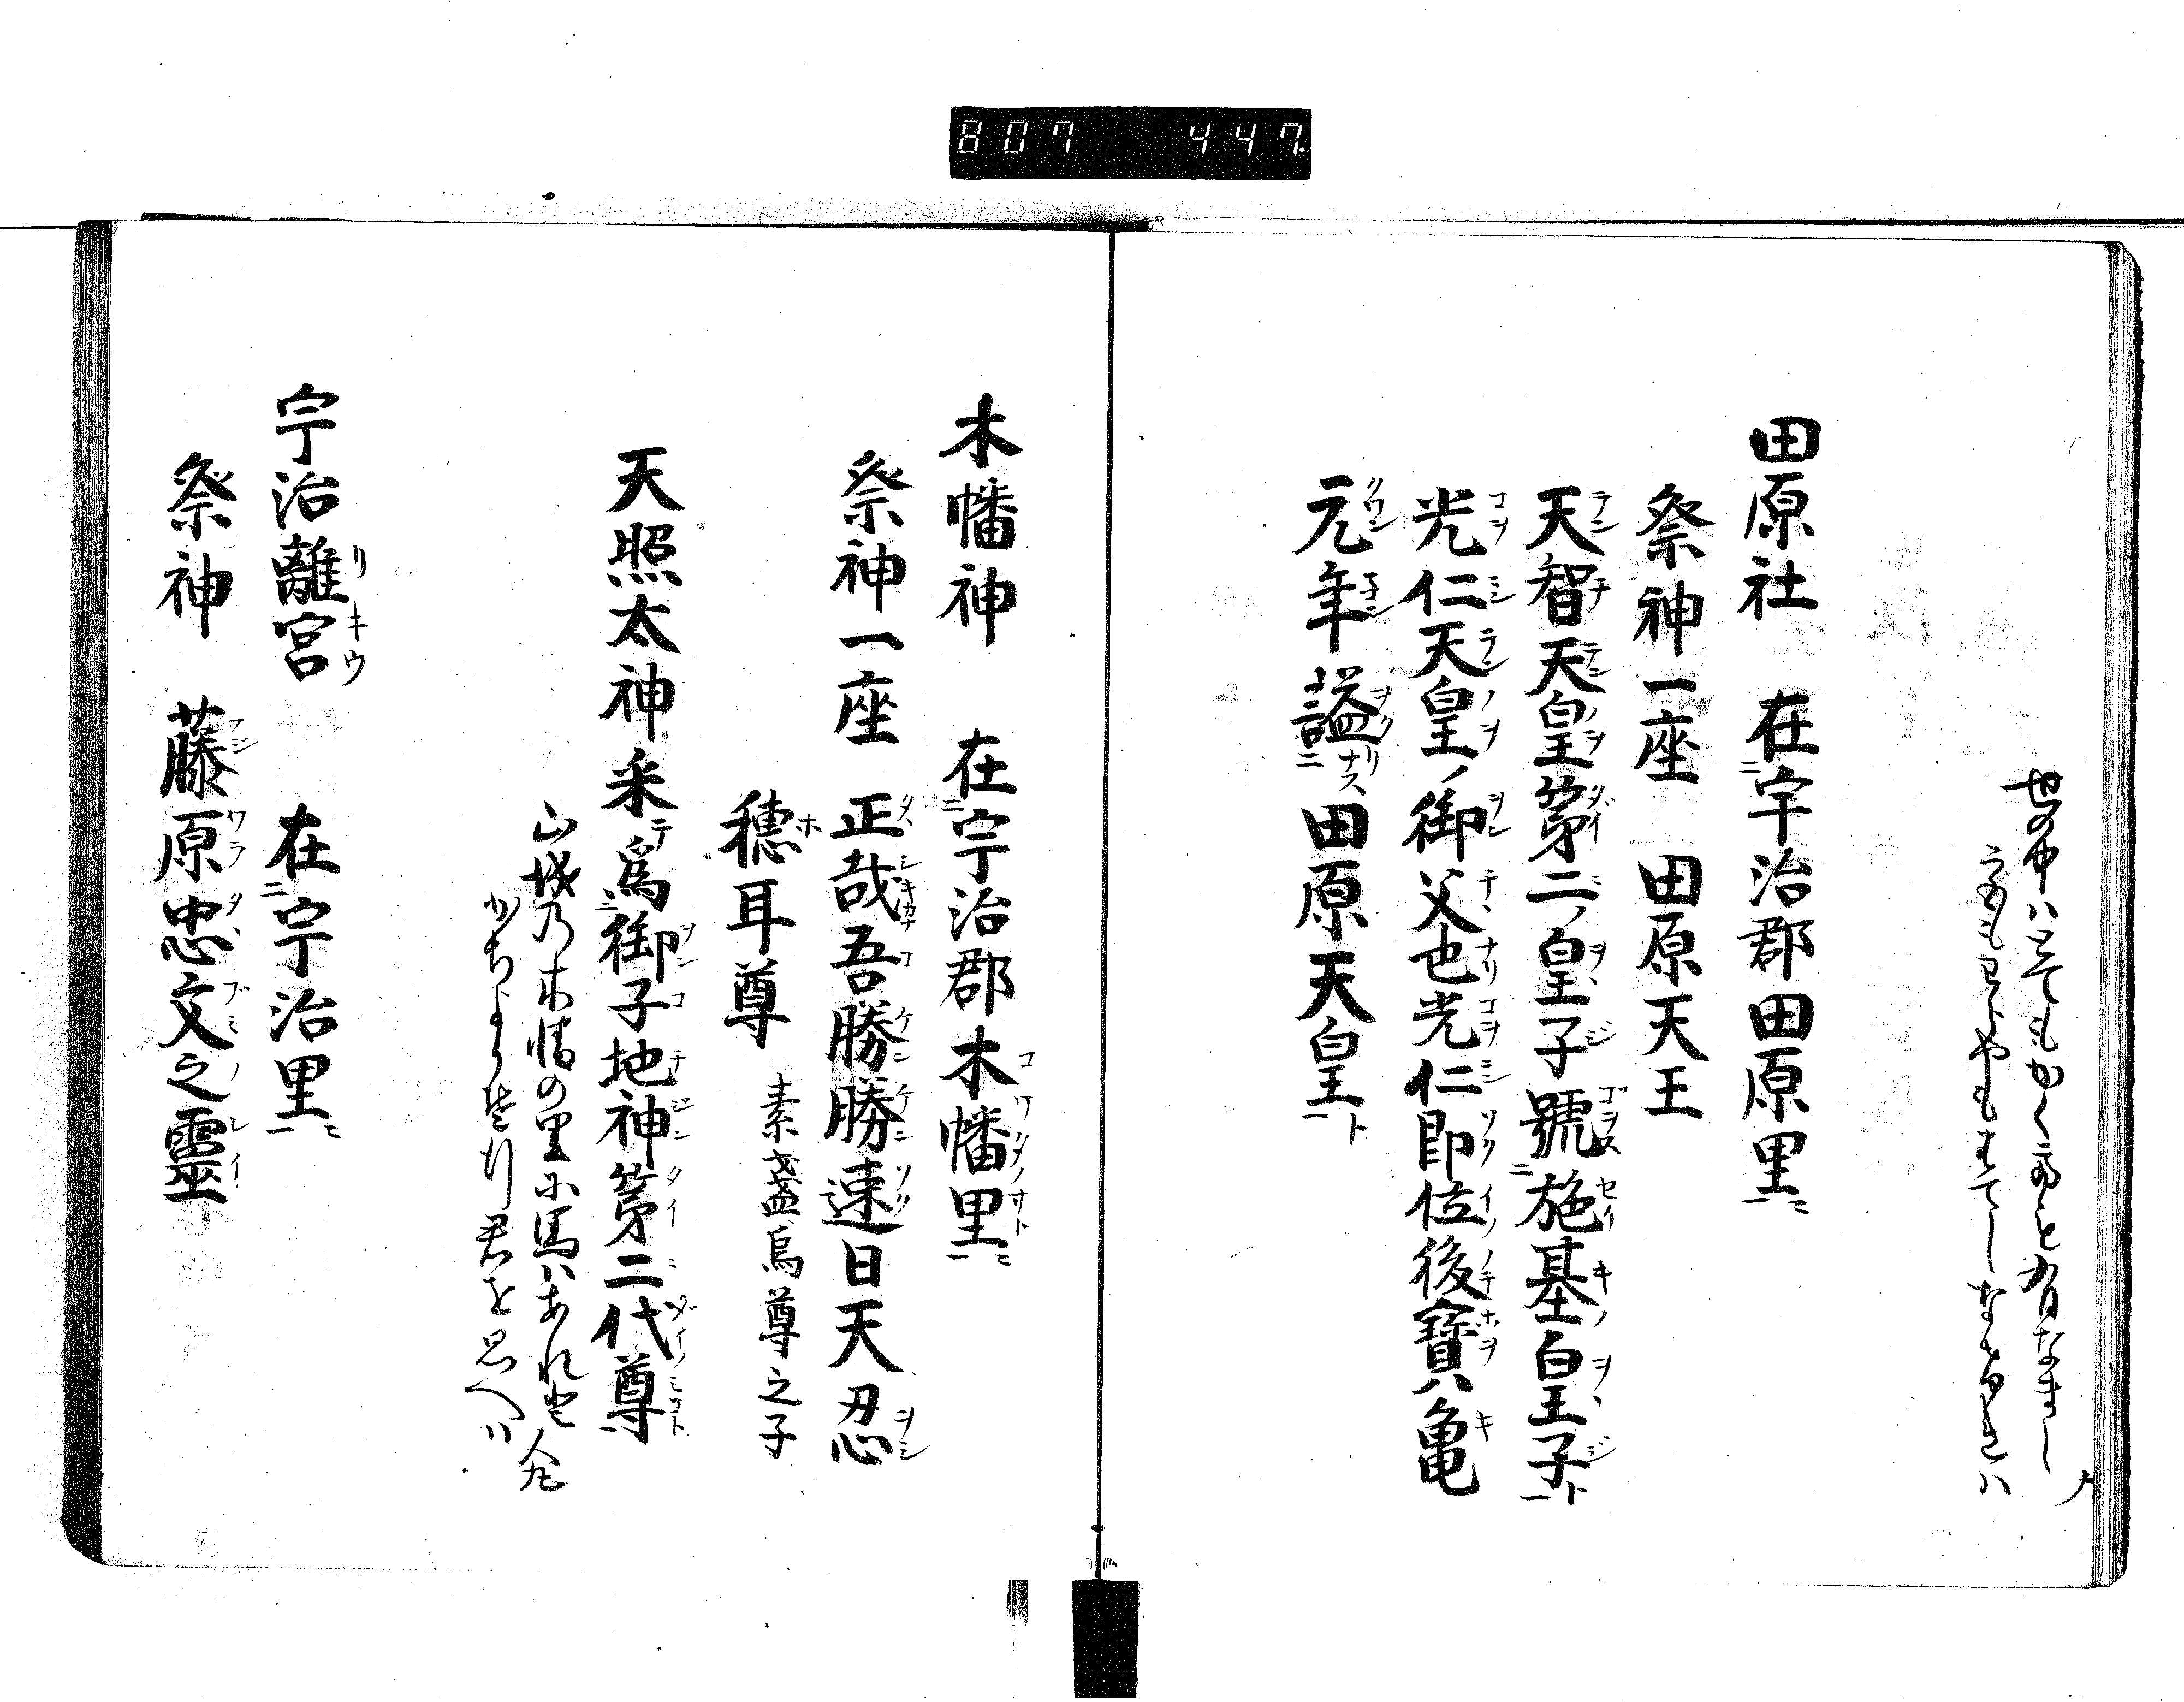 807 447
世の中ハとてもかくても有なまし
宮もわらやもはてしなけれハ
田原社 在宇治郡田原里
祭神一座 田原天王
天智天皇第二ノ皇子號施基皇子
光仁天皇ノ御父也光仁即位後寶亀
元年謚田原天皇
木幡神 在宇治郡木幡里
祭神一座 正哉吾勝勝速日天忍
穂耳尊 素盞烏尊之子
天照太神来為御子地神第二代尊
山城乃木幡の里に馬ハあれと 人丸
かちよりそ行君を思へハ
宇治離宮 在宇治里
祭神 藤原忠文之靈